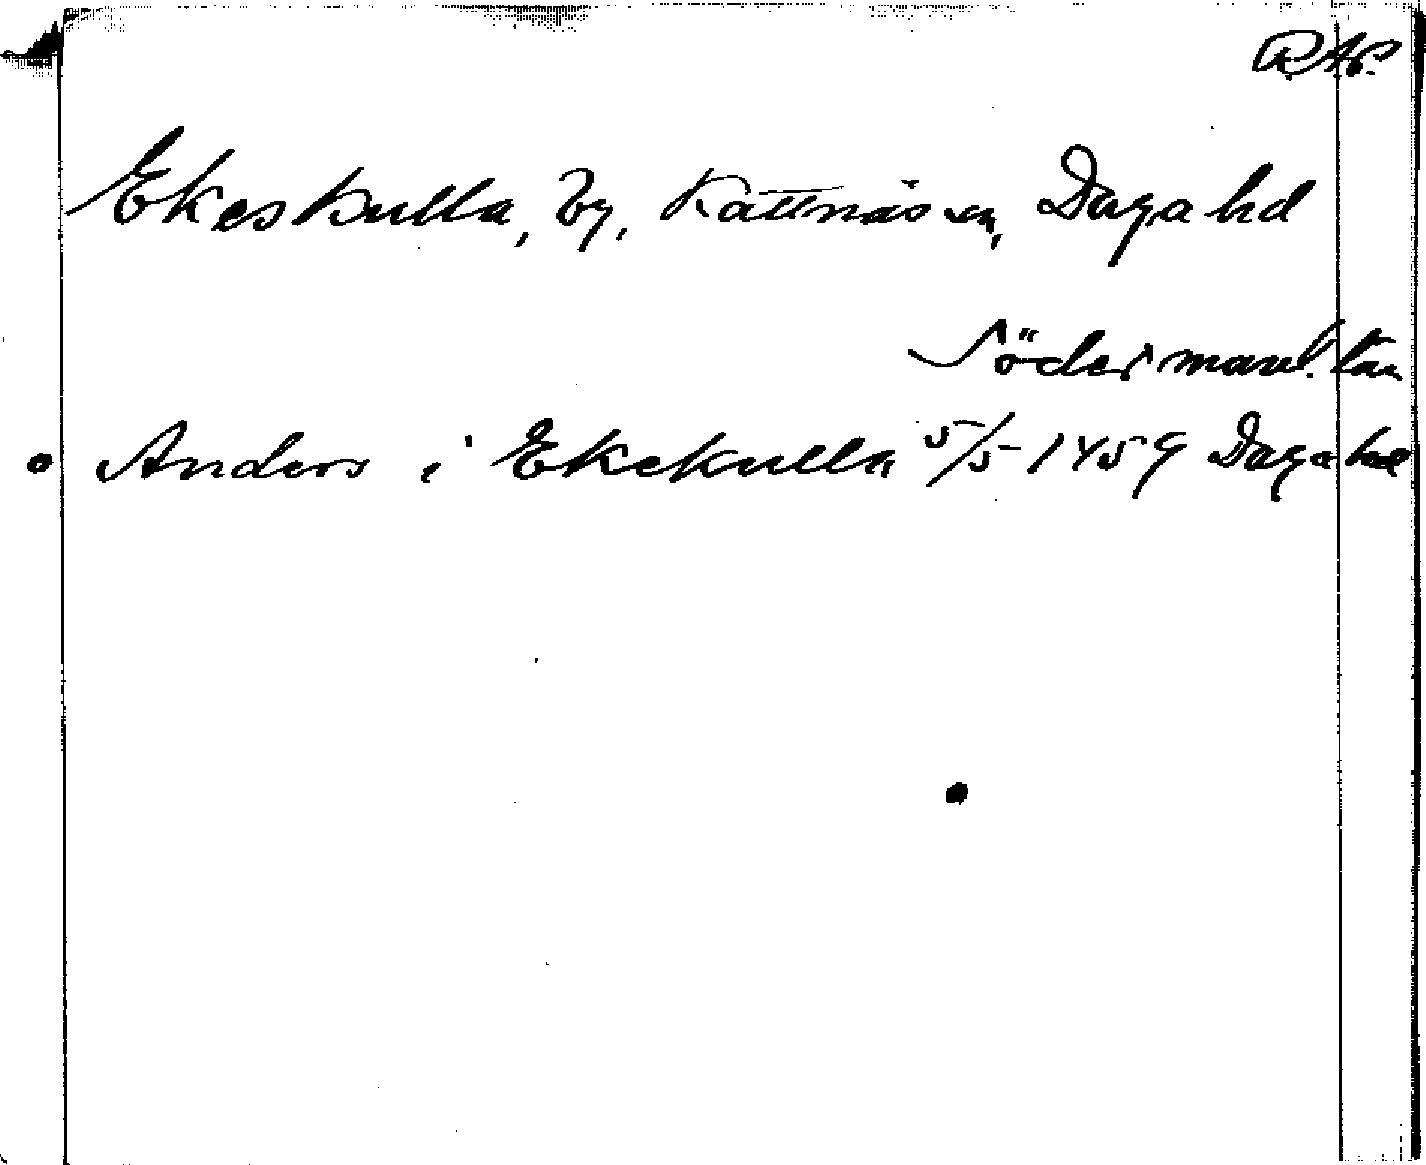 RAp.
Ekeskulla, by, Kattnäs sn, Daga hd
Södermanl. län
Anders i Ekekulla 5/5 1459 Daga hd